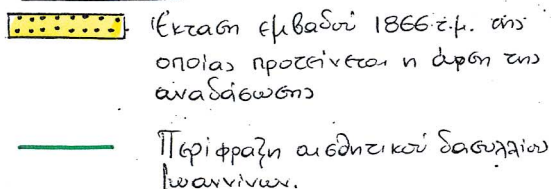 Έκταση εμβαδού 1866 τ.μ. της
οποίας προτείνεται η άρση της
αναδάσωσης
Περίφραξη αισθητικού δασυλλίου
Ιωαννίνων.